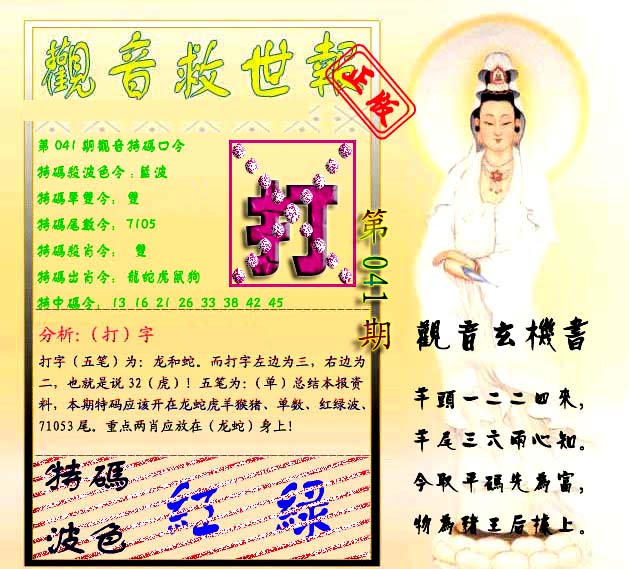 觀音救世報
正版
第041期觀音特碼口令
特碼殺波色令:藍波
特碼單雙令: 雙
特碼尾數令: 7105
特碼殺肖令: 雙
特碼出肖令: 龍蛇虎鼠狗
特中碼令: 13 16 21 26 33 38 42 45
打
第041期
分析:（打）字
打字（五笔）为：龙和蛇。而打字左边为三，右边为
二，也就是说 32（虎）！五笔为:（单）总结本报资
料，本期特码应该开在龙蛇虎羊猴猪、单数、红绿波、
71053 尾。重点两肖应放在（龙蛇）身上！
特碼
波色
紅 綠
觀音玄機書
羊頭一二二四來,
羊尾三六兩心知。
今取平碼先為富,
物為豬王后據上。